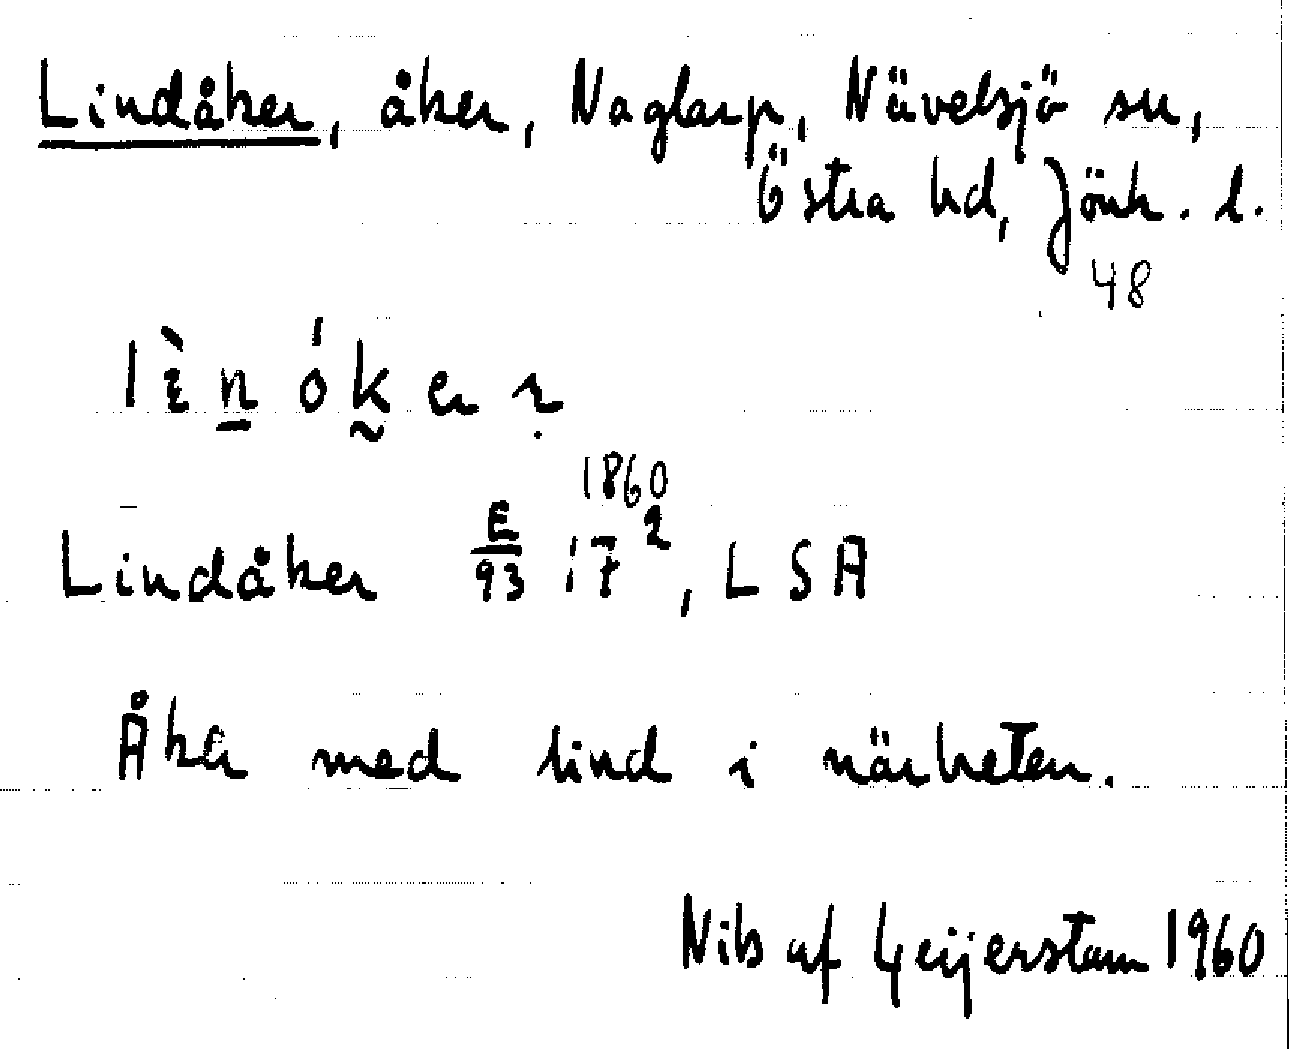 Lindåker, åker, Naglarp, Nävelsjö sn,
Östra hd, Jönk. l.
48
Lindåker E/93 17², LSA
1860
Åker med lind i närheten.
Nils af Geijerstam 1960